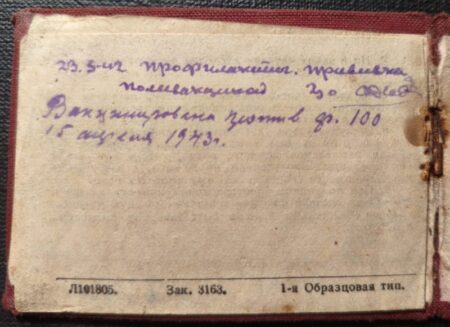 23.5-42 профилакти. прививка
поливакциной
Вакцинирована против ф. 100
15 апреля 1943г.
Л101805. Зак. 3163. 1-я Образцовая тип.